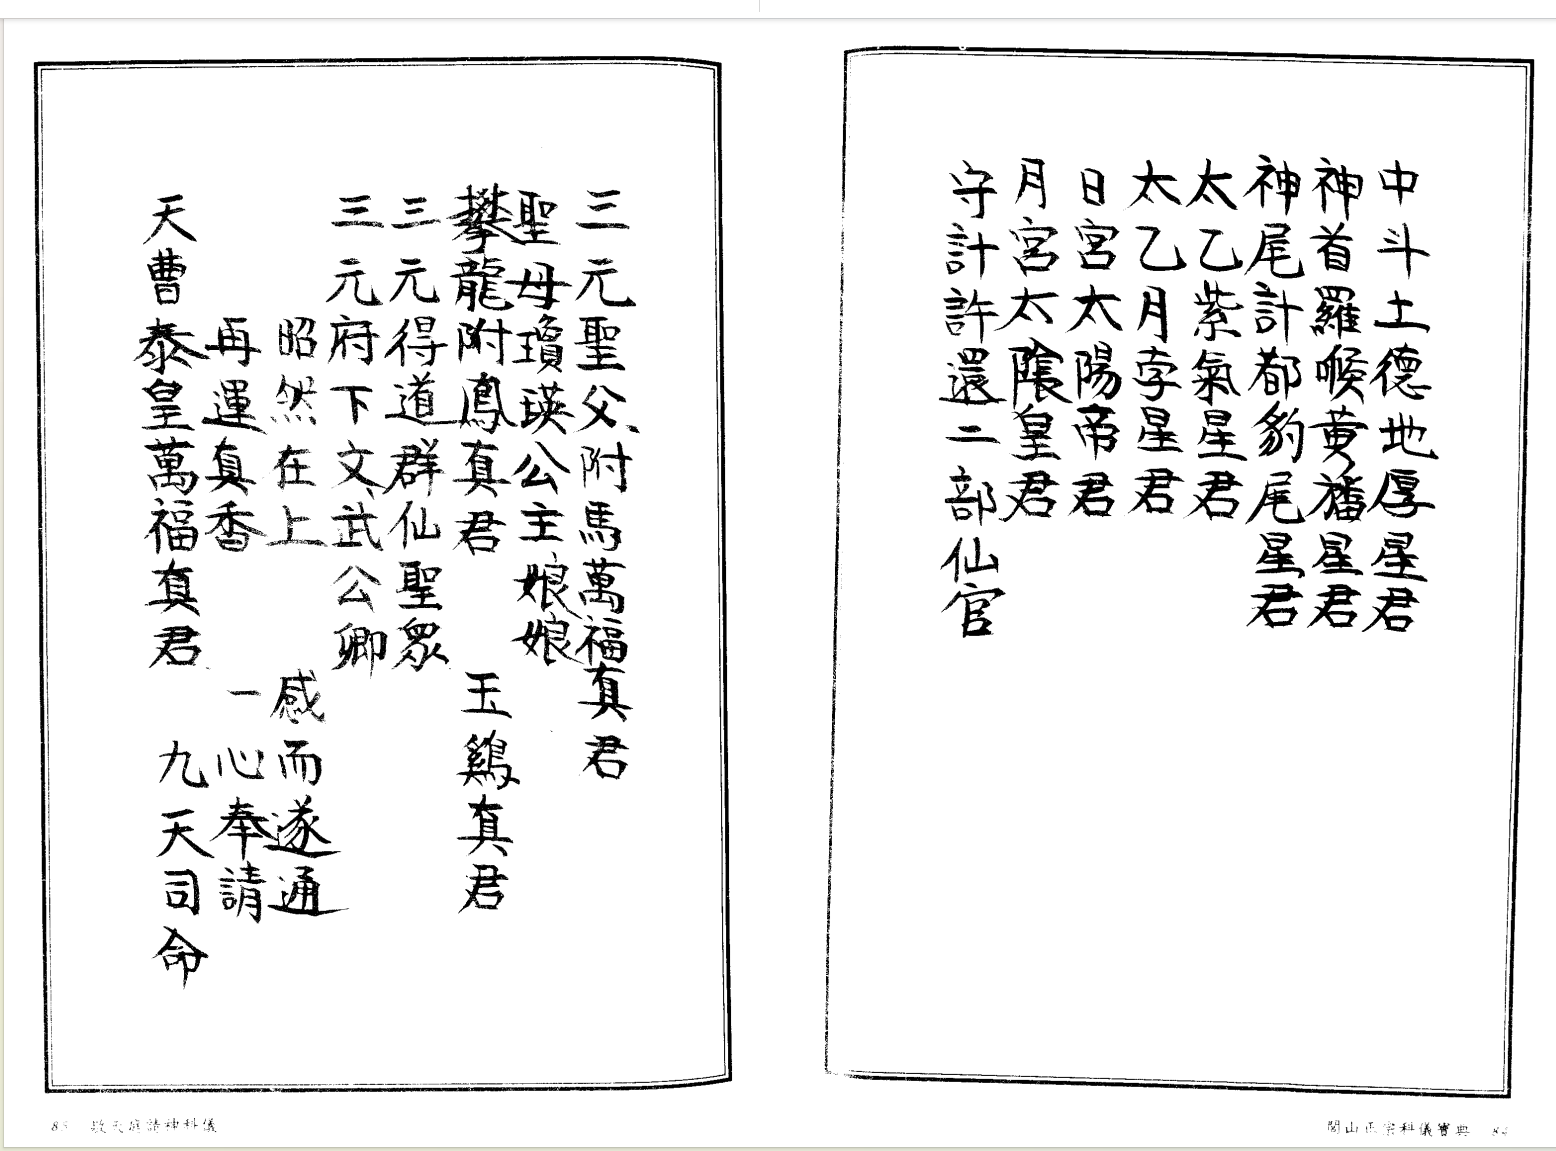 中斗土德地厚星君
神首羅睺黃旛星君
神尾計都豹尾星君
太乙紫氣星君
太乙月孛星君
日宮太陽帝君
月宮太陰皇君
守計許還二部仙官
閭山正宗科儀寶典 84
三元聖父附馬萬福真君
聖母瓊瑛公主娘娘
攀龍附鳳真君 玉鷄真君
三元得道群仙聖眾
三元府下文武公卿
昭然在上 感而遂通
再運真香 一心奉請
天曹泰皇萬福真君 九天司命
85 啟天庭請神科儀